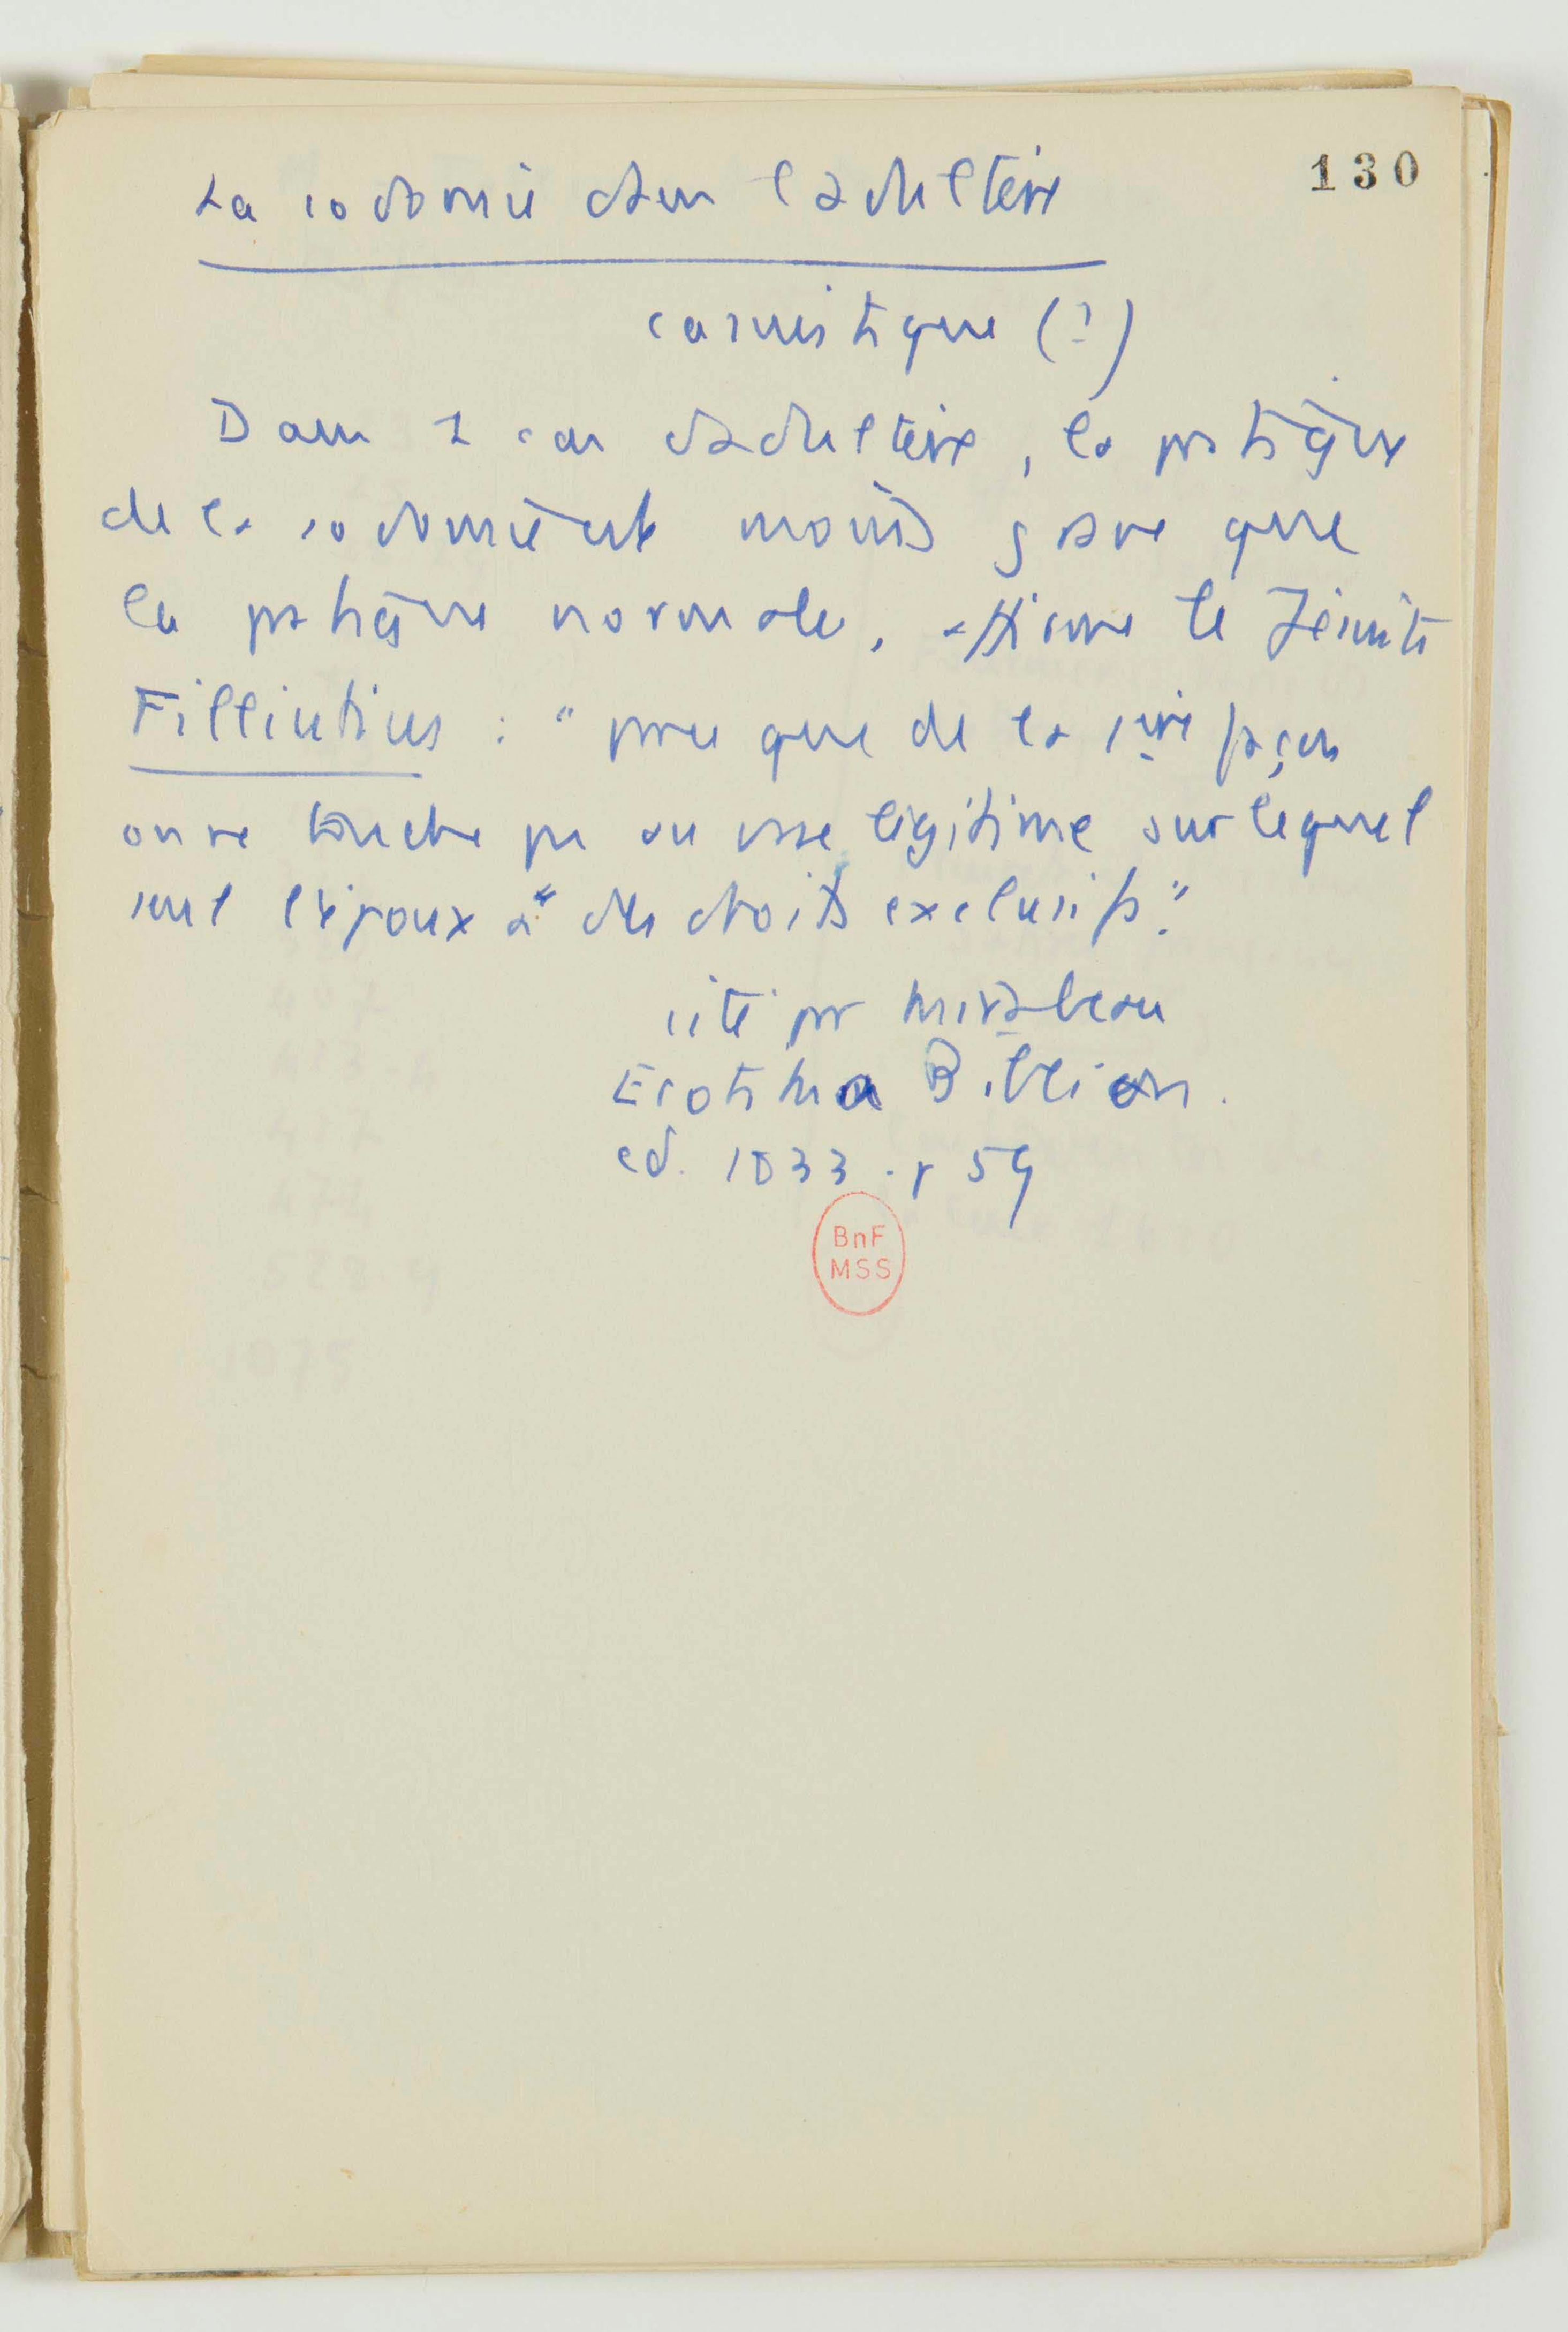 130
La sodomie dans l'adultère
casuistique (?)
Dans 1 cas d'adultère, la pratique
de la sodomie est moins grave que
la pratique normale, affirme le Jésuite
Filliutius : " parce que de la 1ere façon
on ne touche pas au vase légitime sur lequel
seul l'époux a " des droits exclusifs."
cité par Mirabeau
Erotika Biblion.
ed. 1833 . p 59
BnF
MSS